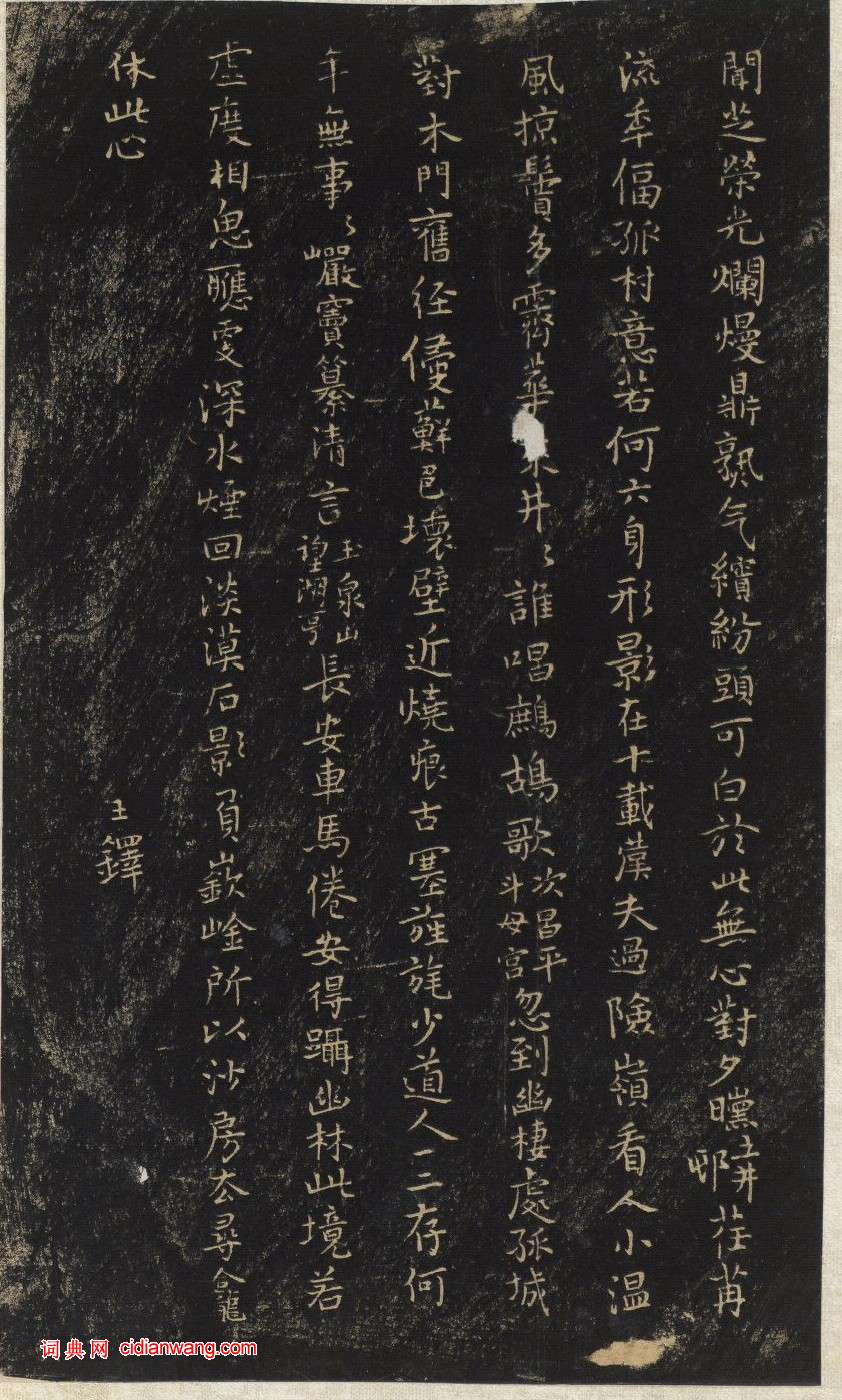 聞芝榮光爛熳鼎孰气繽紛頭可白於此無心對夕曛土井邨荏苒
流秊偪孤村意若何六身形影在十載僕夫過險嶺看人小温
風掠鬢多霽華井〻誰唱鷓鴣歌次昌平斗母宮忽到幽棲處孤城
對木門舊徑侵蘚色壞壁近燒痕古塞旌旄少道人一二存何
年無事〻巖竇纂清言玉泉山望湖亭長安車馬倦安得躡幽林此境若
虛度相思應更深水煙回淡漠石影負嶔崟所以沙房厺尋龕
休此心
王鐸
词典网 cidianwang.com